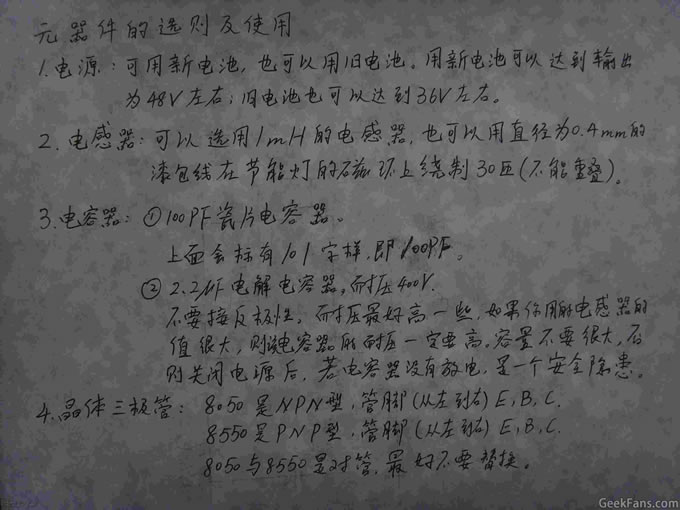 元器件的选则及使用
1.电源：可用新电池，也可以用旧电池。用新电池可以达到输出
为48V左右；旧电池也可以达到36V左右。
2.电感器：可以选用1mH的电感器，也可以用直径为0.4mm的
漆包线在节能灯的磁环上绕制30匝(不能重叠)。
3.电容器：①100PF瓷片电容器。
上面会标有101字样，即100PF。
②2.2μF电解电容器，耐压400V.
不要接反极性，耐压最好高一些，如果你用的电感器的
值很大，则该电容器的耐压一定要高。容量不要很大，否
则关闭电源后，若电容器没有放电，是一个安全隐患。
4.晶体三极管：8050是NPN型，管脚(从左到右)E,B,C.
8550是PNP型，管脚(从左到右)E,B,C.
8050与8550是对管，最好不要替换。
GeekFans.com